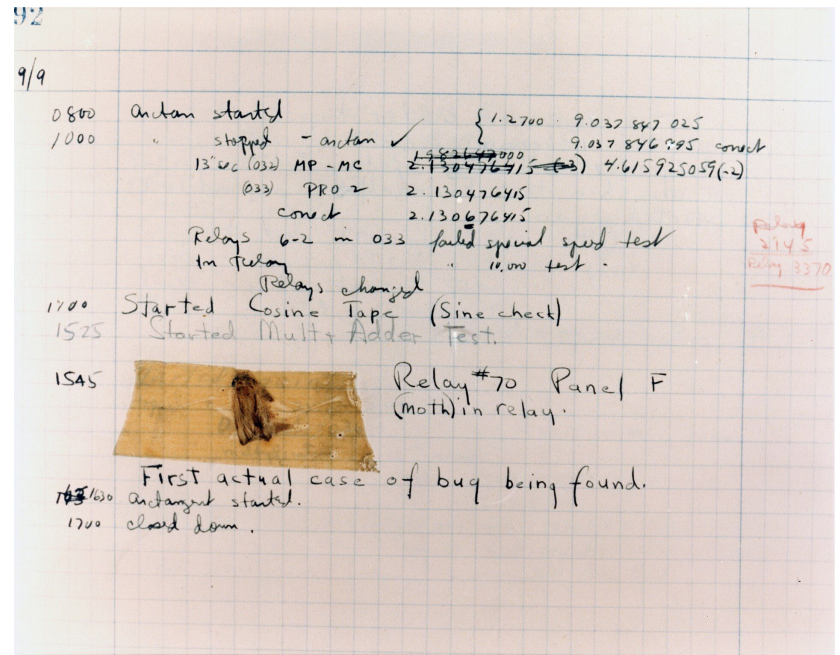 92
9/9
0800 arctan started { 1.2700 9.037 847 025
1000 " stopped - arctan ✓ 9.037 846 995 correct
13" sec (032) MP - MC 2.130476415 (-3) 4.615925059(-2)
(033) PRO 2 2.130476415
correct 2.130676415
Relays 6-2 in 033 failed special speed test
in relay " 10,000 test .
Relays changed
1700 Started Cosine Tape (Sine check)
1525 Started Mult+ Adder Test.
1545 Relay #70 Panel F
(moth) in relay.
First actual case of bug being found.
1630 arctangent started.
1700 closed down.
Relay
Relay 3370